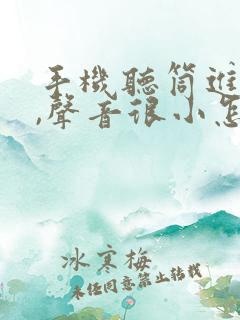 手機聽筒進
,聲音很小怎
冰寒梅
未任同意第止转载